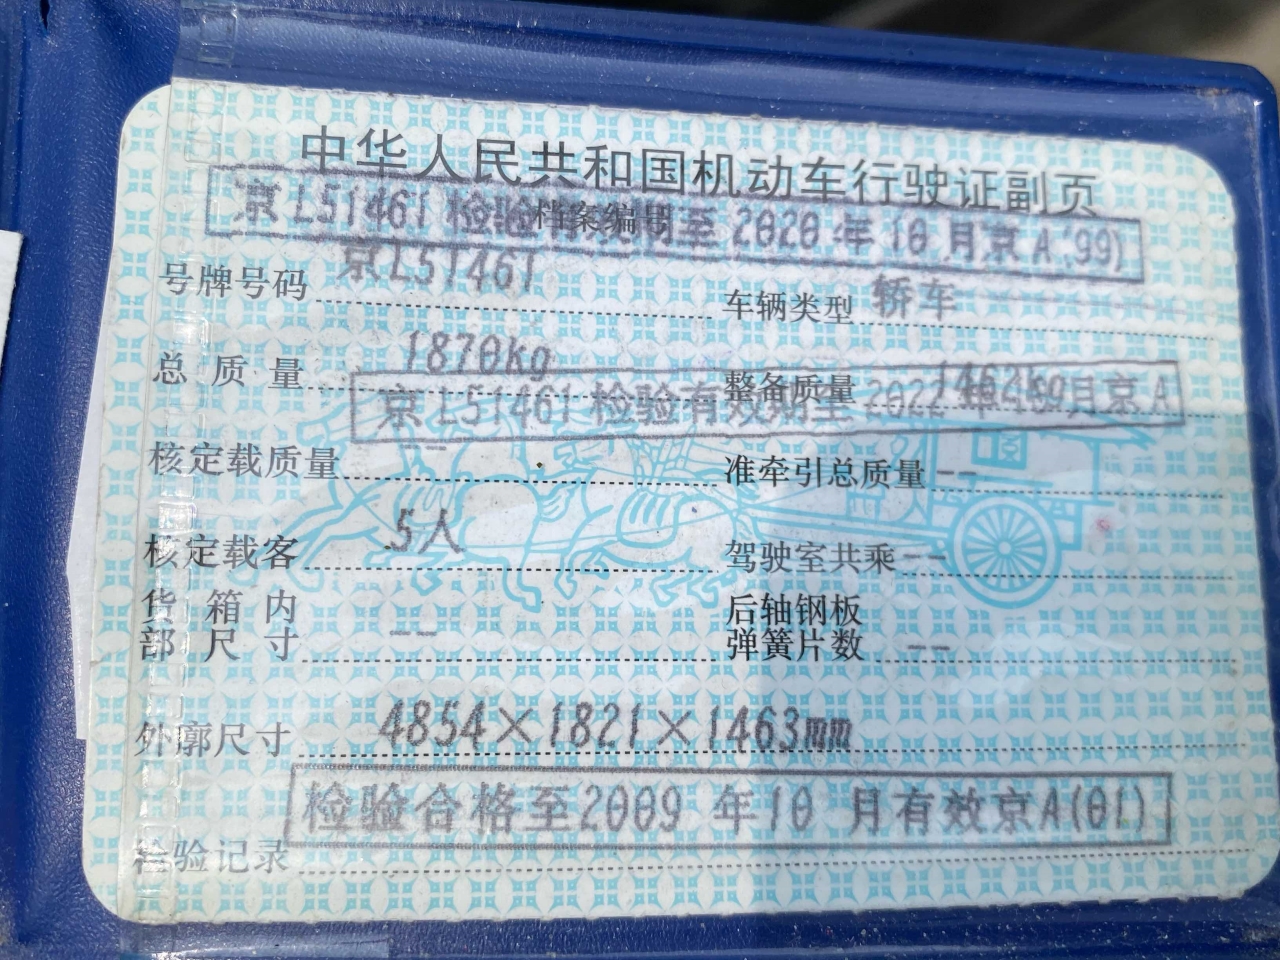 中华人民共和国机动车行驶证副页
京L51461 检验有效期至 2020 年 10 月京 A(99)
档案编号
号牌号码 京L51461 车辆类型 轿车
总质量 1870kg 整备质量 1462kg
京L51461 检验有效期至 2022 年 月京 A
核定载质量 -- 准牵引总质量 --
核定载客 5人 驾驶室共乘 --
货箱内 后轴钢板
部尺寸 -- 弹簧片数 --
外廓尺寸 4854×1821×1463mm
检验合格至2009 年10 月有效京A(01)
检验记录